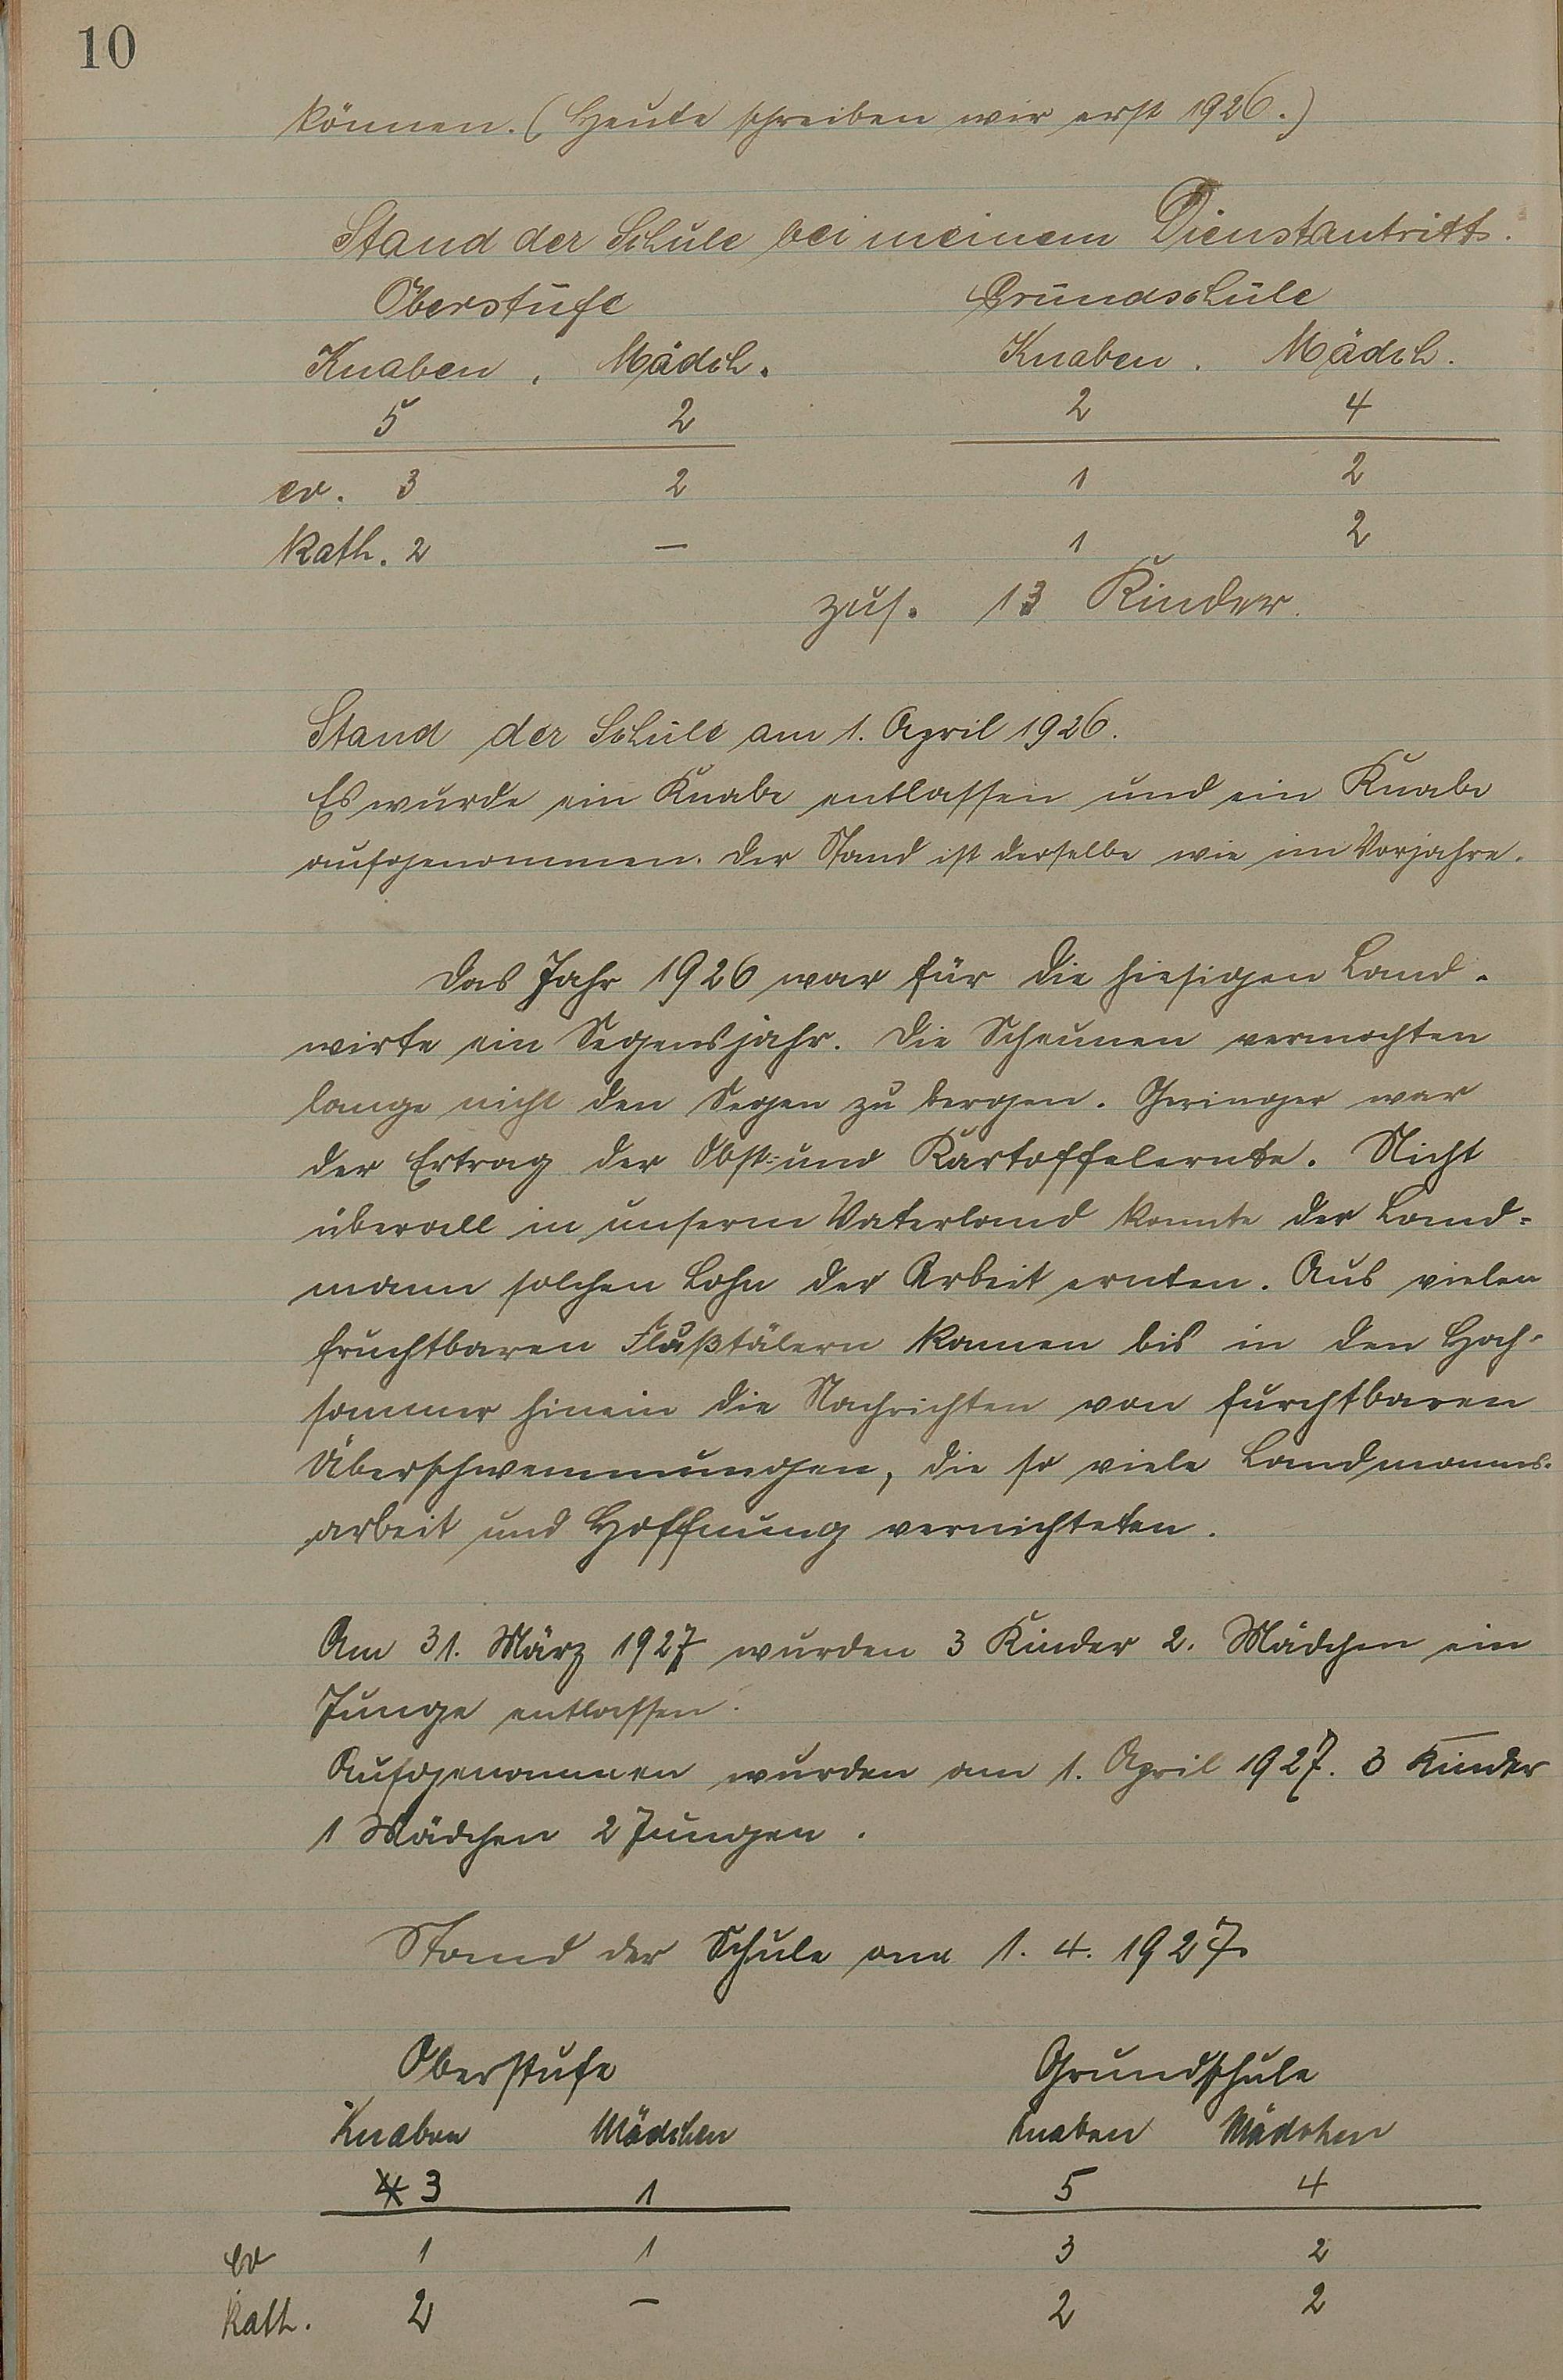 10
können. (Heute schreiben wir erst 1926.)
Stand der Schule bei meinem Dienstantritt.
Oberstufe Grundschule
Knaben. Mädch. Knaben. Mädch.
5 2 2 4
ev. 3 2 1 2
kath. 2 — 1 2
zus. 13 Kinder.
Stand der Schule am 1. April 1926.
Es wurde ein Knabe entlassen und ein Knabe
aufgenommen. Der Stand ist derselbe wie im Vorjahre.
Das Jahr 1926 war für die hiesigen Land-
wirte ein Segensjahr. Die Scheunen vermochten
lange nicht den Segen zu bergen. Geringer war
der Ertrag der Obst- und Kartoffelernte. Nicht
überall in unserm Vaterland konnte der Land-
mann solchen Lohn der Arbeit ernten. Aus vielen
fruchtbaren Flußtälern kamen bis in den Hoch-
sommer hinein die Nachrichten von furchtbaren
Überschwemmungen, die so viele Landmanns-
arbeit und Hoffnung vernichteten.
Am 31. März 1927 wurden 3 Kinder 2. Mädchen ein
Junge entlassen.
Aufgenommen wurden am 1. April 1927. 3 Kinder
1 Mädchen 2 Jungen.
Stand der Schule am 1. 4. 1927.
Oberstufe Grundschule
Knaben Mädchen Knaben Mädchen
4 3 1 5 4
ev 1 1 3 2
Kath. 2 — 2 2